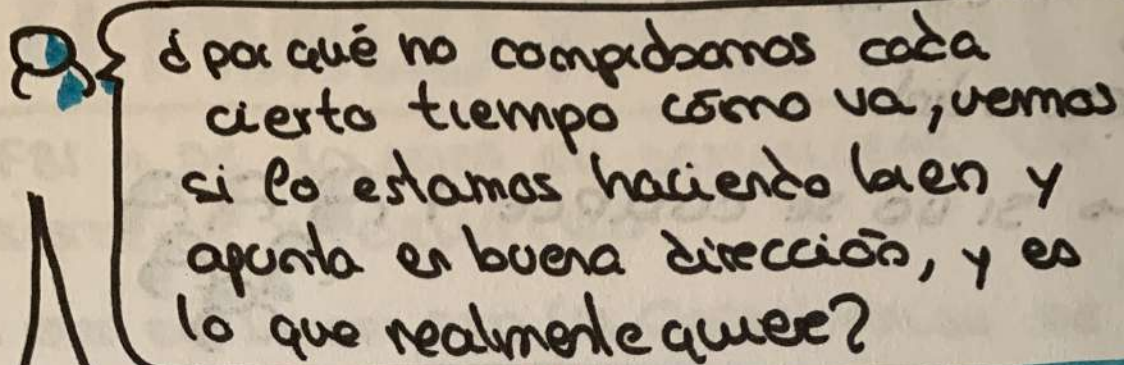 ¿por qué no comprobamos cada
cierto tiempo cómo va, vemos
si lo estamos haciendo bien y
apunta en buena dirección, y es
lo que realmente quiere?